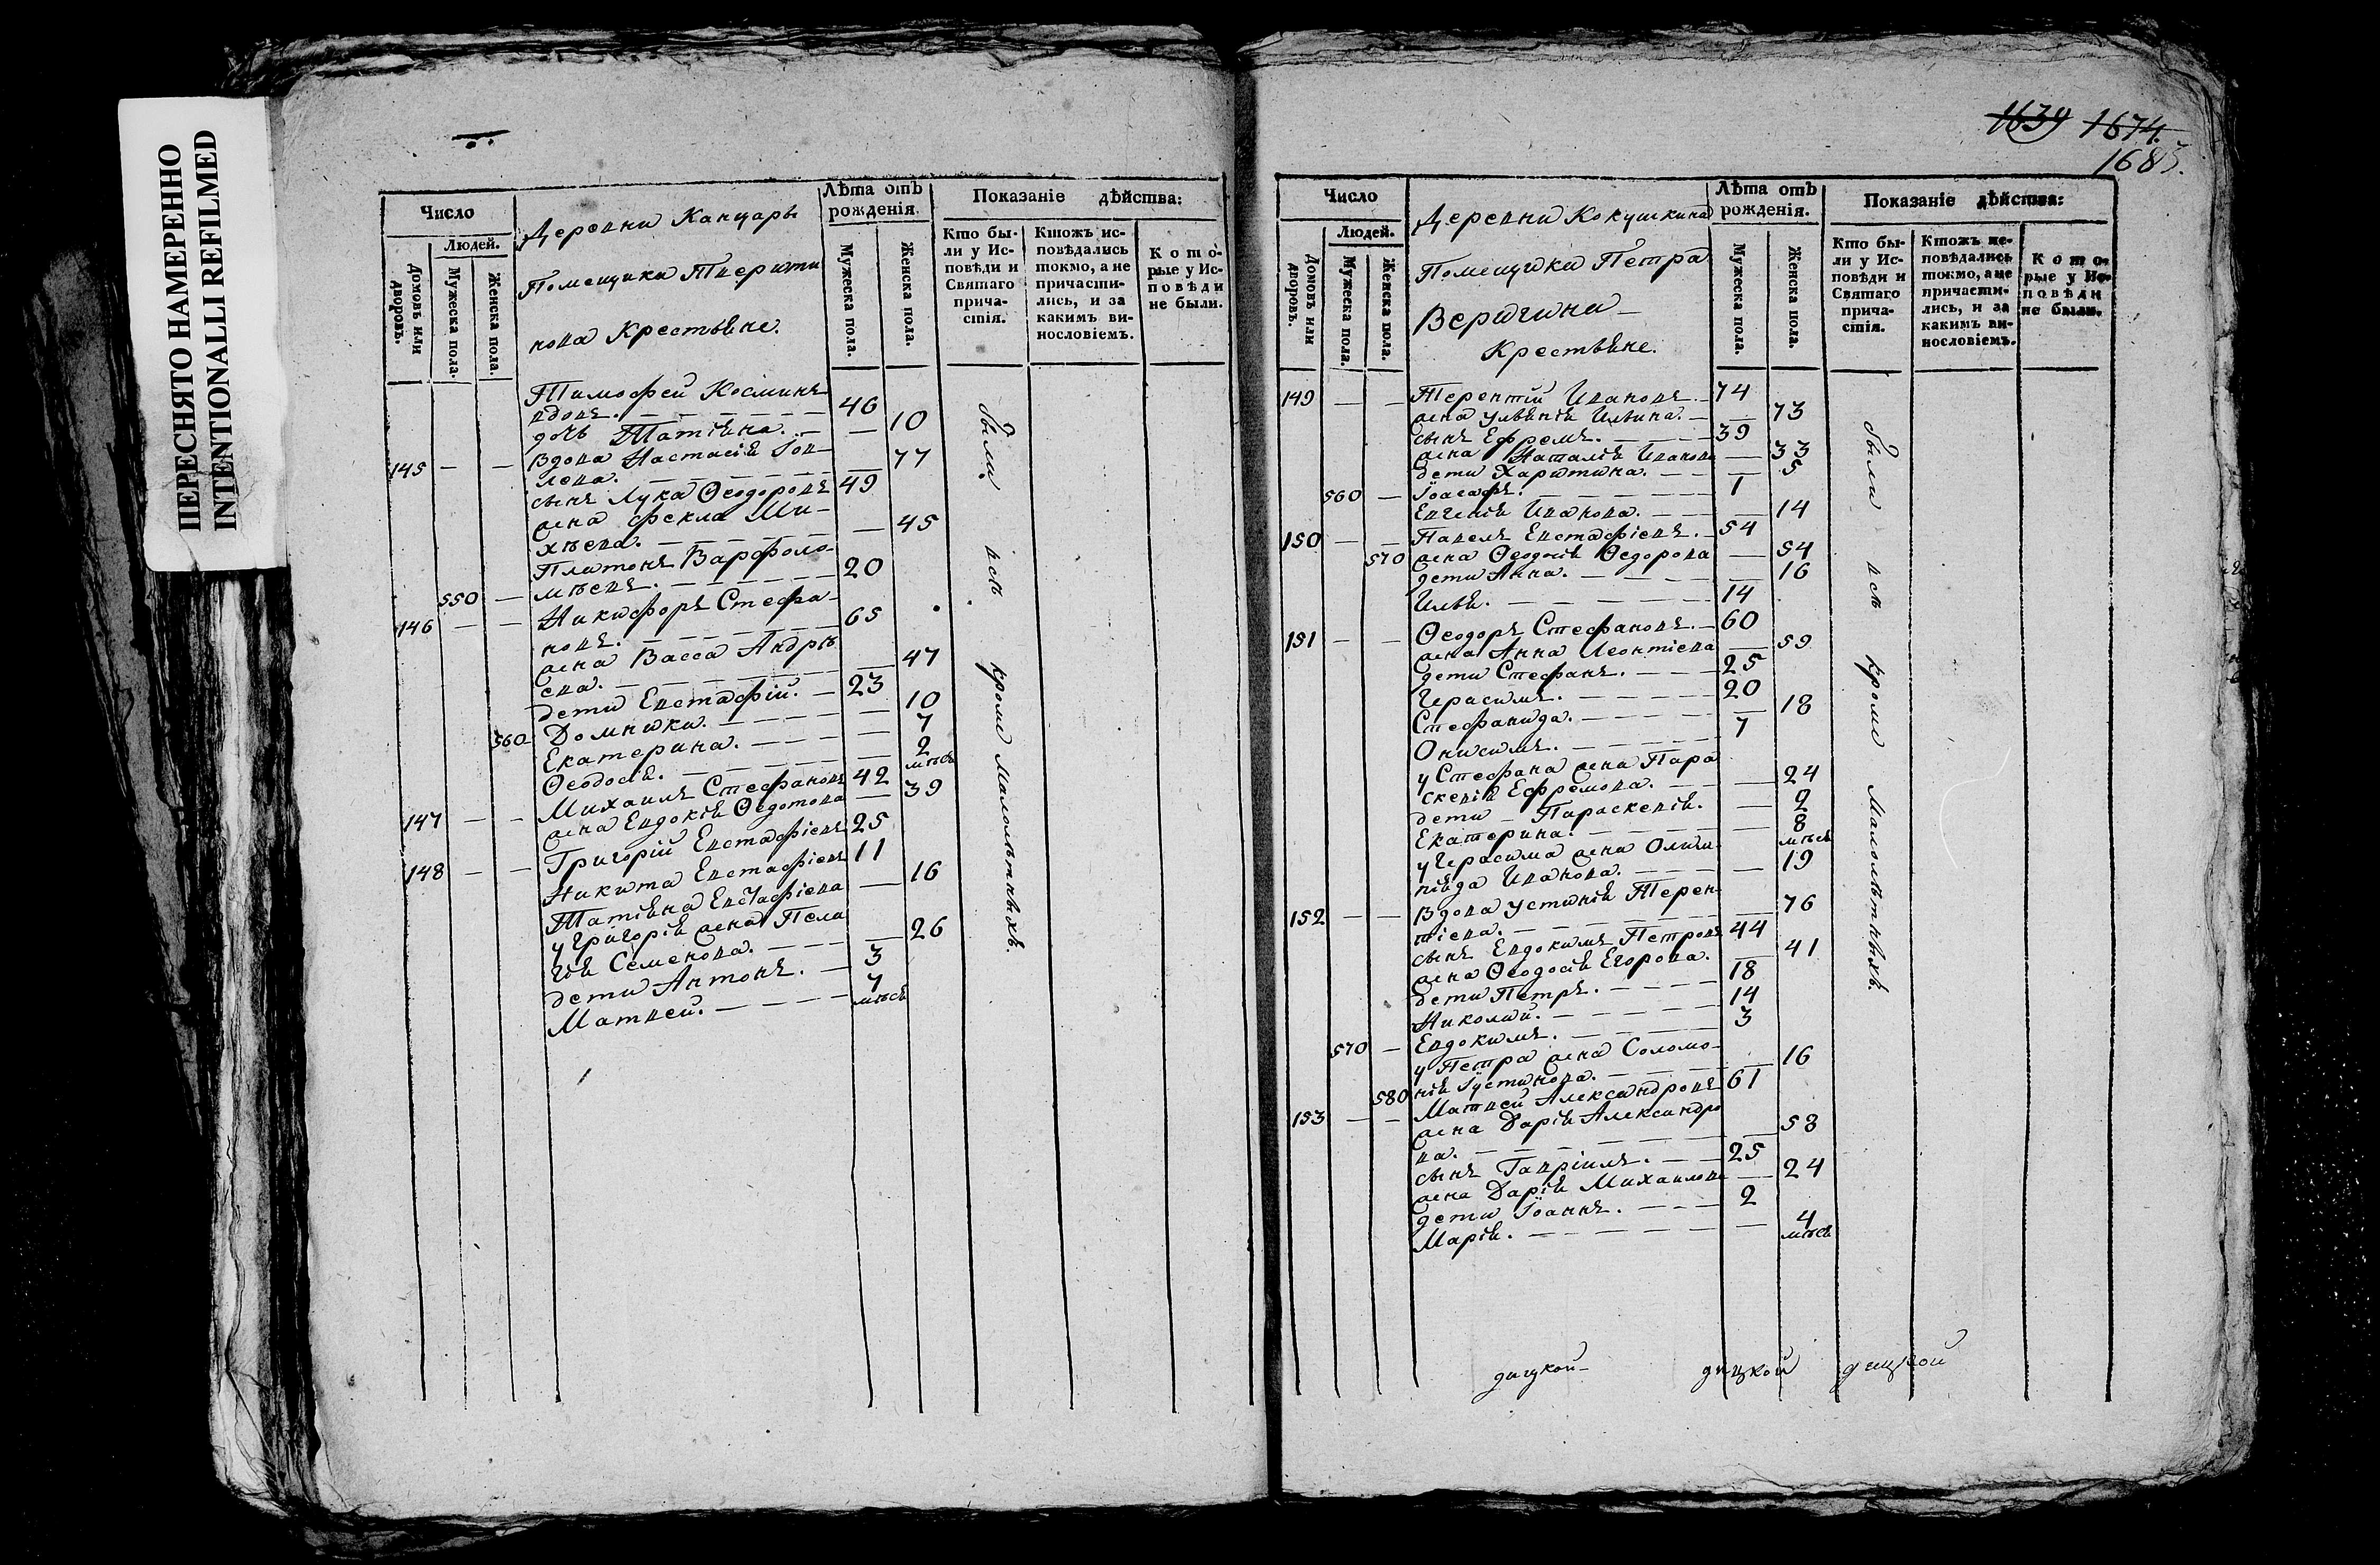 ПЕРЕСНЯТО НАМЕРЕННО
INTENTIONALLI REFILMED
Число
Людей.
Домовъ или дворовъ.
Мужеска пола.
Женска пола.
Деревни Канцары
Помещика
Крестьяне.
Лѣта отъ рожденія.
Мужеска пола.
Женска пола.
Показаніе дѣйства:
Кто были у Исповѣди и Святаго причастія.
Ктожъ исповѣдались токмо, а не причастились, и за какимъ винословіемъ.
Которые у Исповѣди не были.
Тимофей Косминъ
вдовъ. 46
дочь Татіяна. 10
145 Вдова Настасія Іов-
лева. 77
сынъ Лука Ѳеодоровъ 49
жена Фекла Ми-
хѣева. 45
Платонъ Варфоло-
550 мѣевъ. 20
146 Никифоръ Стефа-
новъ. 65
жена Васса Андрѣ
ева. 47
дети Евстафій. 23
560 Домника. 10
Екатерина. 7
Ѳеодосія. 2 мѣся
147 Михаилъ Стефановъ 42
жена Евдокія Ѳедотова 39
148 Григорій Евстафіевъ 25
Никита Евстафіевъ 11
Татіяна Евстафіева 16
у Григорія жена Пела
гія Семенова. 26
дети Антонъ. 3
Матвей. 7 мѣся
были всѣ кроме малолѣтныхъ.
1639 1674.
1683.
Число
Людей.
Домовъ или дворовъ.
Мужеска пола.
Женска пола.
Деревни Кокушкина
Помещика Петра
Веригина
Крестьяне.
Лѣта отъ рожденія.
Мужеска пола.
Женска пола.
Показаніе дѣйства:
Кто были у Исповѣди и Святаго причастія.
Ктожъ исповѣдались токмо, а не причастились, и за какимъ винословіемъ.
Которые у Исповѣди не были.
149 Терентій Ивановъ 74
жена Ульянія Ильина. 73
сынъ Ефремъ. 39
жена Наталія Иванова 33
дети Харитина. 5
560 Іоасафъ. 1
Евгенія Иванова. 14
150 Павелъ Евстафіевъ. 54
570 жена Ѳеодосія Ѳедорова 54
дети Анна. 16
Илья. 14
151 Ѳеодоръ Стефановъ. 60
жена Анна Леонтіева 59
дети Стефанъ. 25
Герасимъ. 20
Стефанида. 18
Онисимъ. 7
у Стефана жена Пара
скевія Ефремова. 24
дети Параскевія. 2
Екатерина. 8 мѣся
у Герасима жена Олим-
піяда Иванова. 19
152 Вдова Устинія Терен-
тіева. 76
сынъ Евдокимъ Петровъ 44
жена Ѳеодосія Егорова. 41
дети Петръ. 18
Николай. 14
570 Евдокимъ. 3
у Петра жена Соломо-
580 нія Іустинова. 16
153 Матвей Александровъ 61
жена Дарія Александро
ва. 58
сынъ Гавріилъ. 25
жена Дарія Михаилова 24
дети Іоаннъ. 2
Марія. 4 мѣся
были всѣ кроме малолѣтныхъ.